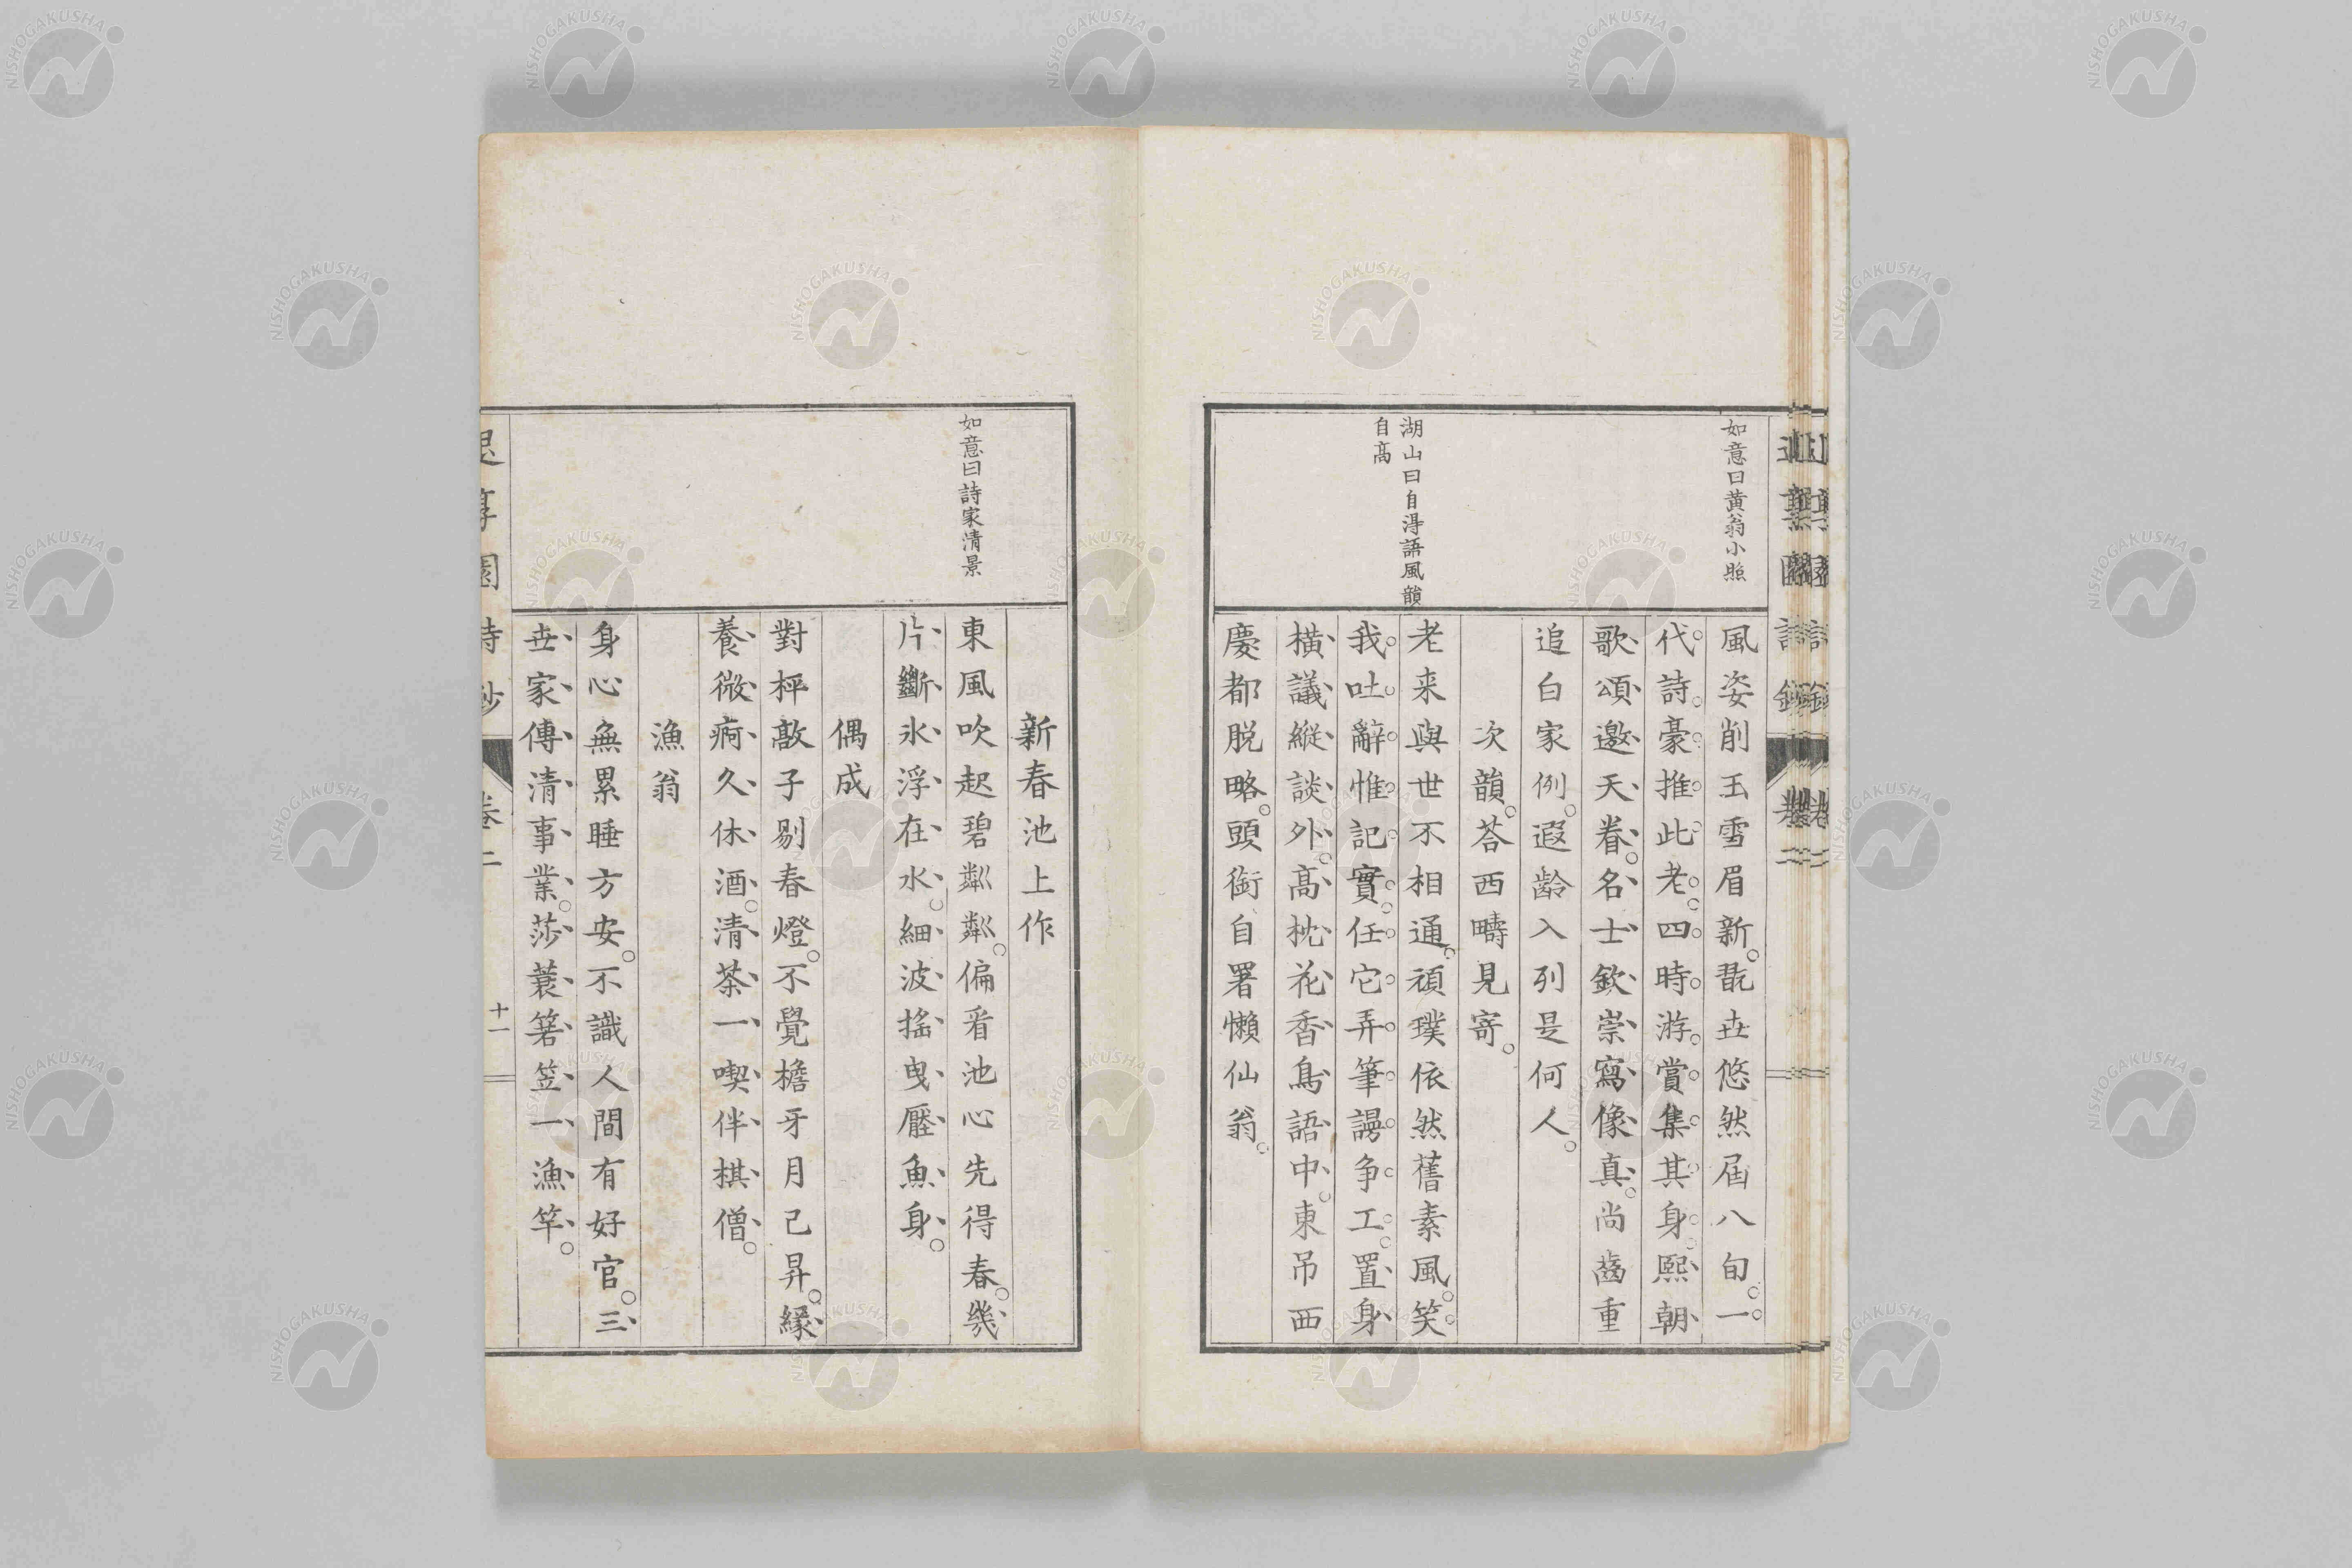 如意曰黄翁小照
風姿削玉雪眉新。翫丗悠然屆八旬。一
代詩豪推此老。四時游賞集其身。熙朝
歌頌邀天眷。名士欽崇寫像真。尚齒重
追白家例。遐齡入列是何人。
次韻。荅西疇見寄。
湖山曰自淂語風韻
自髙
老来與世不相通。頑璞依然舊素風。笑
我吐辭惟記實。任它弄筆謾争工。置身
橫議縱談外。高枕花香鳥語中。東吊西
慶都脱略。頭銜自署懶仙翁。
新春池上作
如意曰詩家清景
東風吹起碧粼粼。偏看池心先得春。幾
片斷氷浮在水。細波搖曳壓魚身。
偶成
對枰敲子剔春燈。不覺檐牙月已昇。緣
養微痾久休酒。清茶一喫伴棋僧。
漁翁
身心無累睡方安。不識人間有好官。三
丗家傳清事業。莎蓑箬笠一漁竿。
園詩鈔
卷二
十一